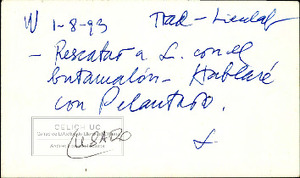 W 1-8-93 Trad - Lienlaf
- Rescatar a L. con el
butamalón - Hablaré
con Pelantaro.
CELICH UC
(USADO